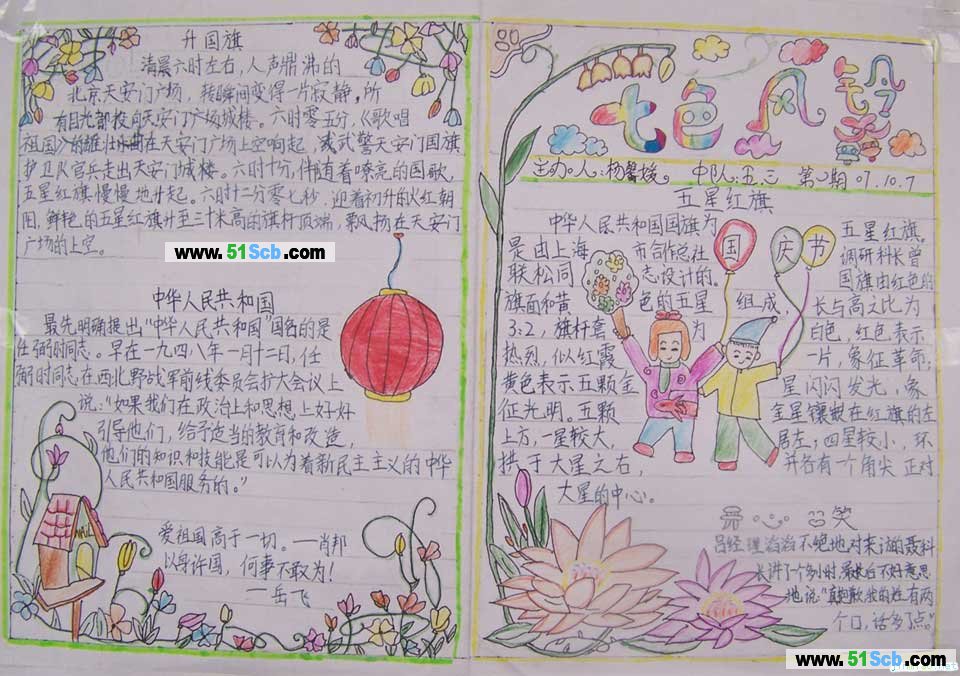 升国旗
清晨六时左右，人声鼎沸的
北京天安门广场，转瞬间变得一片寂静，所
有目光都投向天安门广场城楼。六时零五分，《歌唱
祖国》的雄壮曲在天安门广场上空响起，武警天安门国旗
护卫队官兵走出天安门城楼。六时十分，伴随着嘹亮的国歌，
五星红旗慢慢地升起。六时十二分零七秒，迎着初升的火红朝
阳，鲜艳的五星红旗升至三十米高的旗杆顶端，飘扬在天安门
广场的上空。
www.51Scb.com
中华人民共和国
最先明确提出"中华人民共和国"国名的是
任弼时同志。早在一九四八年一月十二日，任
弼时同志在西北野战军前线委员会扩大会议上
说："如果我们在政治上和思想上好好
引导他们，给予适当的教育和改造，
他们的知识和技能是可以为着新民主主义的中华
人民共和国服务的。"
爱祖国高于一切。—肖邦
以身许国，何事不敢为！
—岳飞
七色风铃
主办人：杨馨媛 中队：五.三 第2期 07.10.7
五星红旗
中华人民共和国国旗为 五星红旗，
是由上海 市合作总社 调研科长曾
联松同 志设计的。 国旗由红色的
旗面和黄 色的五星 组成， 长与高之比为
3:2，旗杆套 为 白色，红色表示
热烈，似红霞 一片，象征革命；
黄色表示五颗金 星闪闪发光，象
征光明。五颗 金星镶嵌在红旗的左
上方，一星较大， 居左；四星较小，环
拱于大星之右， 并各有一个角尖 正对
大星的中心。
国 庆 节
笑
吕经理滔滔不绝地对来访的聂科
长讲了个多小时，最后不好意思
地说："真抱歉，我的姓有两
个口，话多了点。"
www.51Scb.com